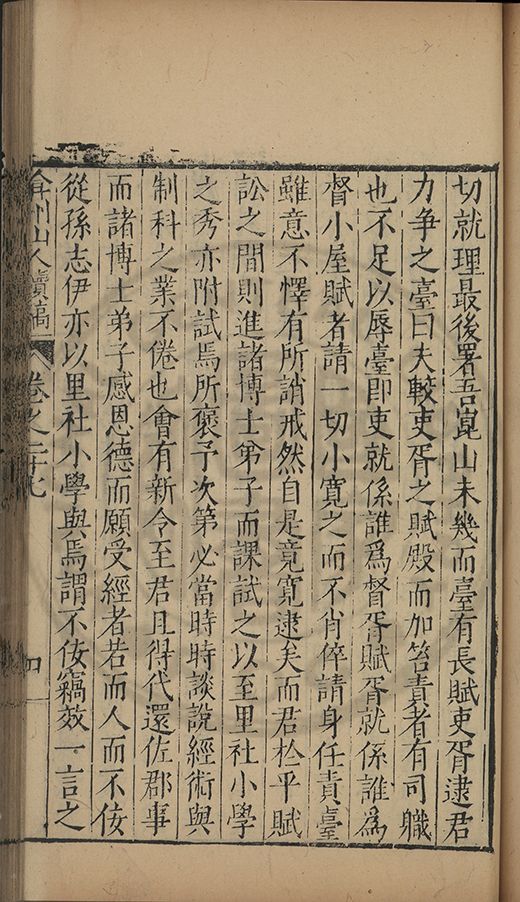 切就理最後署吾崑山未幾而臺有長賦吏胥逮君
力争之臺曰夫較吏胥之賦殿而加笞責者有司職
也不足以辱臺即吏就係誰爲督胥賦胥就係誰爲
督小屋賦者請一切小寛之而不肖倅請身任責臺
雖意不懌有所誚戒然自是竟寛逮矣而君於平賦
訟之間則進諸博士弟子而課試之以至里社小學
之秀亦附試焉所褒予次第必當時時談說經術與
制科之業不倦也會有新令至君且得代還佐郡事
而諸博士弟子感恩德而願受經者若而人而不佞
從孫志伊亦以里社小學與焉謂不佞竊效一言之
弇州山人續稿 卷之二十七 四